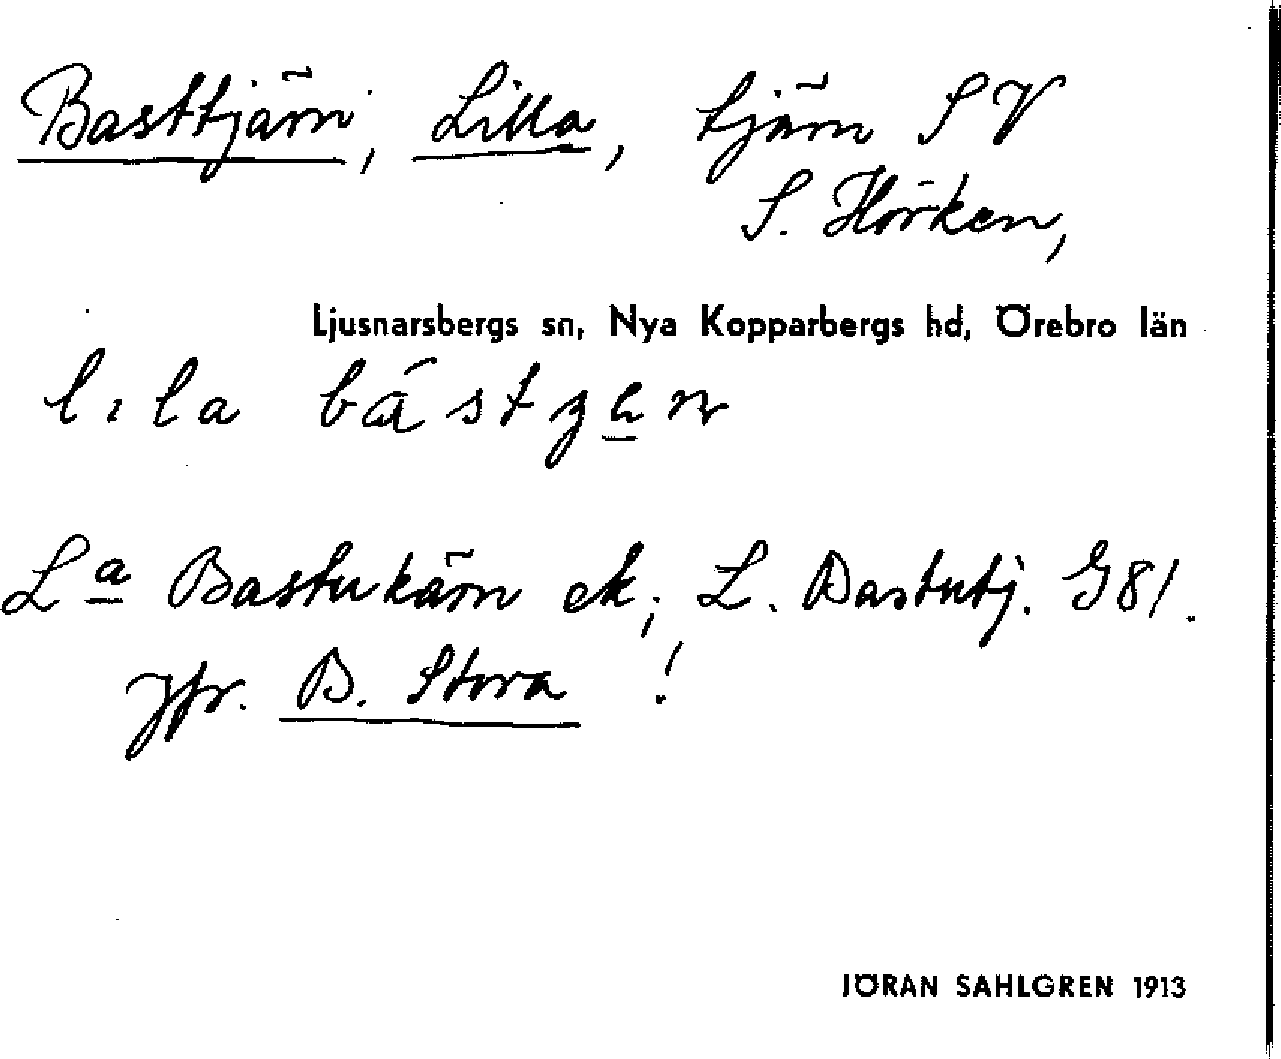 Basttjärn, Lilla, tjärn SV
S. Hörken,
Ljusnarsbergs sn, Nya Kopparbergs hd, Örebro län
lıla bástȷen
L<u>a</u> Bastukärn ek; L. Bastutj. G81.
Jfr. B. Stora !
JÖRAN SAHLGREN 1913